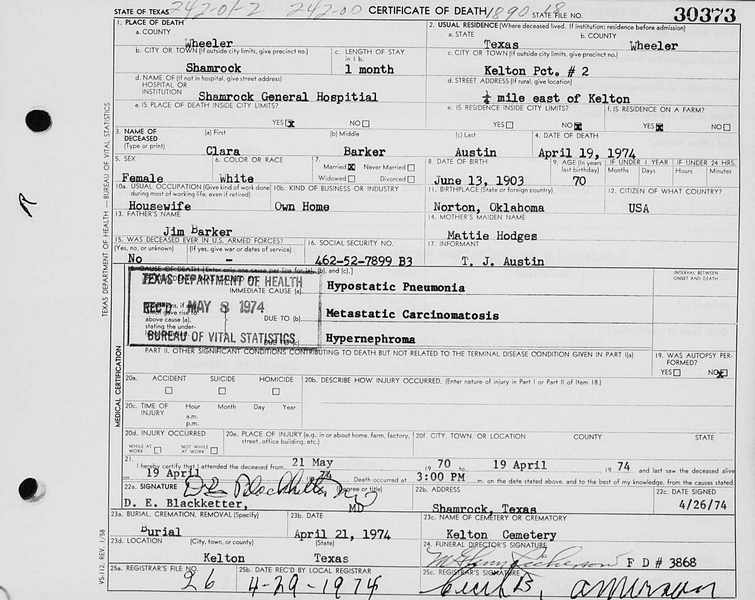 STATE OF TEXAS
CERTIFICATE OF DEATH
STATE FILE NO.
30373
1. PLACE OF DEATH
a. COUNTY
Wheeler
2. USUAL RESIDENCE (Where deceased lived. If institution: residence before admission)
a. STATE
Texas
b. COUNTY
Wheeler
b. CITY OR TOWN (If outside city limits, give precinct no.)
Shamrock
c. LENGTH OF STAY
in 1 b.
1 month
c. CITY OR TOWN (If outside city limits, give precinct no.)
Kelton Pct. # 2
d. NAME OF (If not in hospital, give street address)
HOSPITAL OR
INSTITUTION
Shamrock General Hospitial
d. STREET ADDRESS (If rural, give location)
¼ mile east of Kelton
e. IS PLACE OF DEATH INSIDE CITY LIMITS?
YES NO
e. IS RESIDENCE INSIDE CITY LIMITS?
YES NO
f. IS RESIDENCE ON A FARM?
YES NO
3. NAME OF
DECEASED
(Type or print)
(a) First
Clara
(b) Middle
Barker
(c) Last
Austin
4. DATE OF DEATH
April 19, 1974
5. SEX
Female
6. COLOR OR RACE
White
7.
Married Never Married
Widowed Divorced
8. DATE OF BIRTH
June 13, 1903
9. AGE (In years
last birthday)
70
IF UNDER 1 YEAR
Months Days
IF UNDER 24 HRS.
Hours Minutes
10a. USUAL OCCUPATION (Give kind of work done
during most of working life, even if retired)
Housewife
10b. KIND OF BUSINESS OR INDUSTRY
Own Home
11. BIRTHPLACE (State or foreign country)
Norton, Oklahoma
12. CITIZEN OF WHAT COUNTRY?
USA
13. FATHER'S NAME
Jim Barker
14. MOTHER'S MAIDEN NAME
Mattie Hodges
15. WAS DECEASED EVER IN U.S. ARMED FORCES?
(Yes, no, or unknown) (If yes, give war or dates of service)
No -
16. SOCIAL SECURITY NO.
462-52-7899 B3
17. INFORMANT
T. J. Austin
TEXAS DEPARTMENT OF HEALTH
REC'D MAY 8 1974
BUREAU OF VITAL STATISTICS
IMMEDIATE CAUSE (a)
Hypostatic Pneumonia
DUE TO (b)
Metastatic Carcinomatosis
Hypernephroma
INTERVAL BETWEEN
ONSET AND DEATH
above cause (a),
stating the under-
PART II. OTHER SIGNIFICANT CONDITIONS CONTRIBUTING TO DEATH BUT NOT RELATED TO THE TERMINAL DISEASE CONDITION GIVEN IN PART I(a)
19. WAS AUTOPSY PER-
FORMED?
YES NO
MEDICAL CERTIFICATION
20a. ACCIDENT SUICIDE HOMICIDE
20b. DESCRIBE HOW INJURY OCCURRED. (Enter nature of injury in Part I or Part II of Item 18.)
20c. TIME OF
INJURY
Hour Month Day Year
a.m.
p.m.
20d. INJURY OCCURRED
WHILE AT
WORK
NOT WHILE
AT WORK
20e. PLACE OF INJURY (e.g., in or about home, farm, factory,
street, office building, etc.)
20f. CITY, TOWN, OR LOCATION COUNTY STATE
21.
I hereby certify that I attended the deceased from 21 May 1970 19 April 1974 and last saw the deceased alive
on 19 April 74 Death occurred at 3:00 PM m. on the date stated above, and to the best of my knowledge, from the causes stated.
22a. SIGNATURE
(Degree or title)
D. E. Blackketter, MD
22b. ADDRESS
Shamrock, Texas
22c. DATE SIGNED
4/26/74
23a. BURIAL, CREMATION, REMOVAL (Specify)
Burial
23b. DATE
April 21, 1974
23c. NAME OF CEMETERY OR CREMATORY
Kelton Cemetery
23d. LOCATION (City, town, or county) (State)
Kelton Texas
24. FUNERAL DIRECTOR'S SIGNATURE
F D # 3868
25a. REGISTRAR'S FILE NO.
26
25b. DATE REC'D BY LOCAL REGISTRAR
4-29-1974
25c. REGISTRAR'S SIGNATURE
TEXAS DEPARTMENT OF HEALTH — BUREAU OF VITAL STATISTICS
VS-112, REV. 1/58